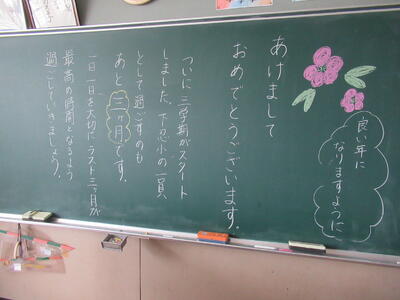 良い年に
なりますように
あけまして
おめでとうございます。
ついに三学期がスタート
しました。下忍小の一員
として過ごすのも
あと三ヶ月です。
一日一日を大切にラスト三ヶ月が
最高の時間となるよう
過ごしていきましょう。